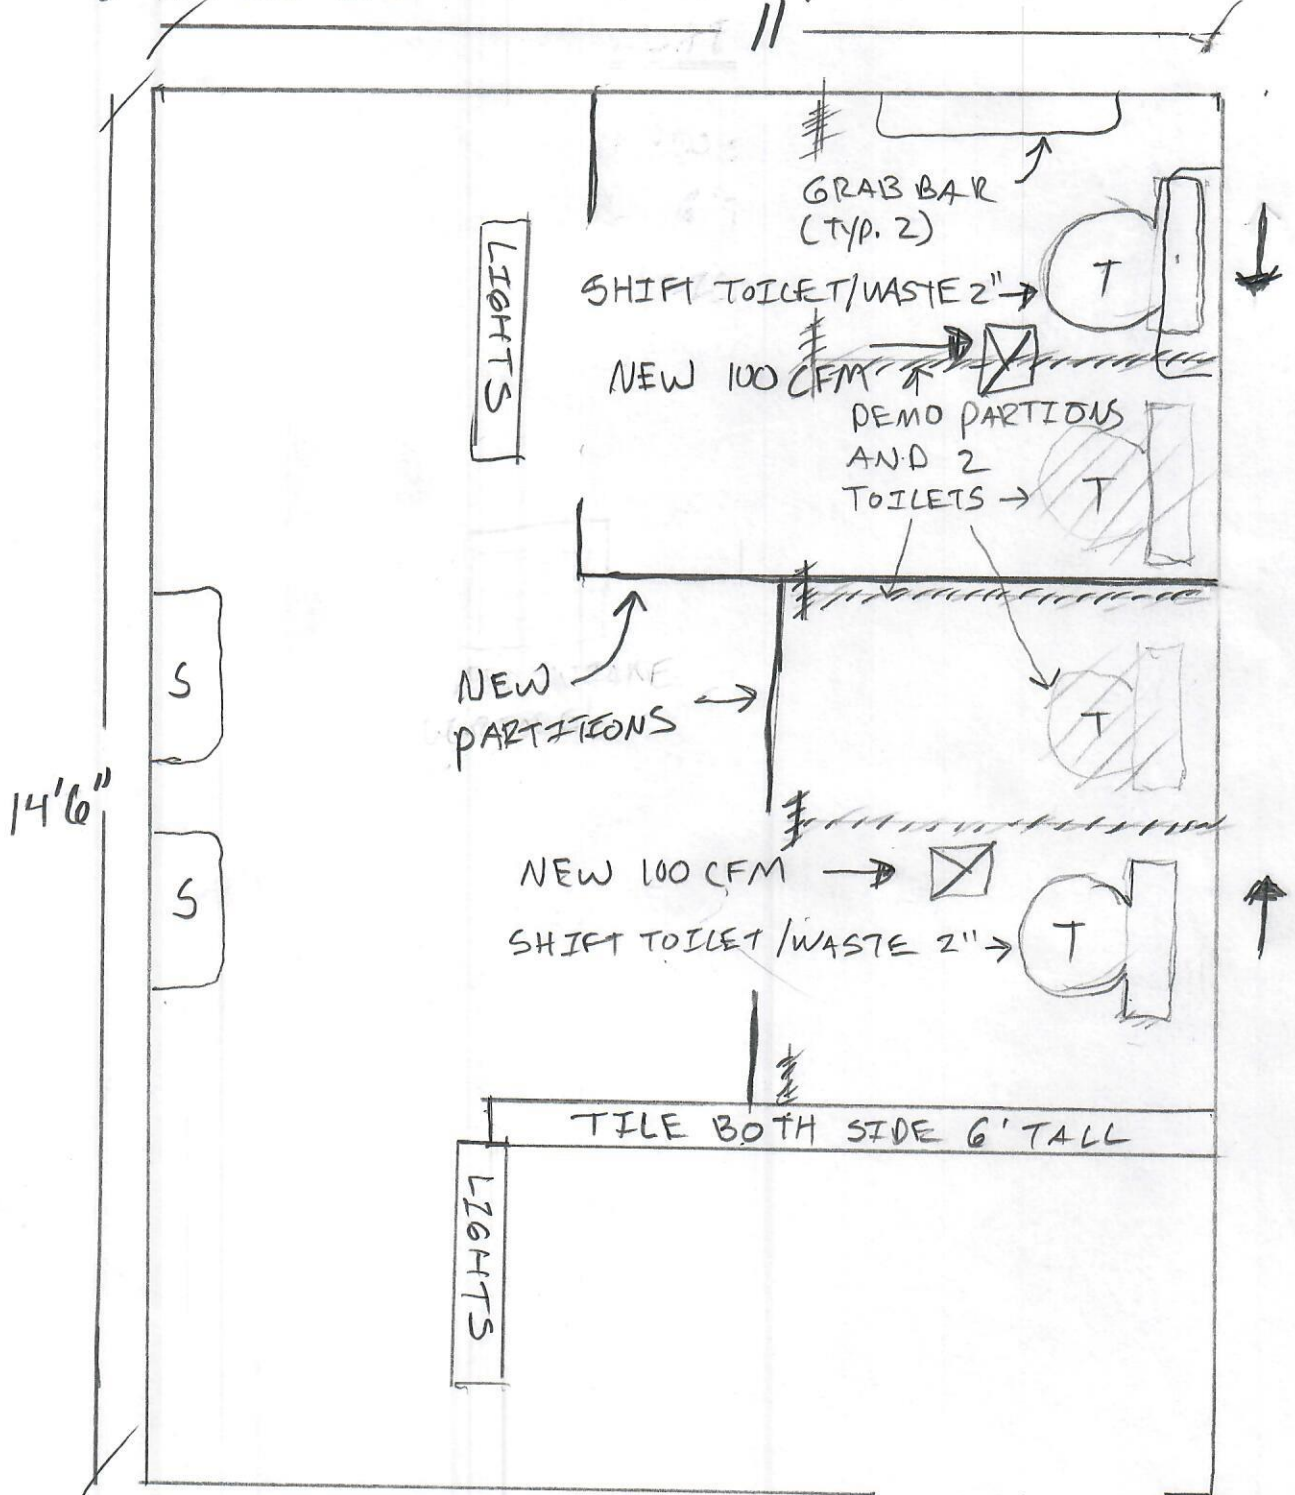 11'
GRAB BAR
(TYP. 2)
LIGHTS
T
SHIFT TOILET/WASTE 2"
NEW 100 CFM
DEMO PARTIONS
AND 2
TOILETS
T
NEW
PARTITIONS
S
T
14'6"
S
NEW 100 CFM
SHIFT TOILET/WASTE 2"
T
TILE BOTH SIDE 6' TALL
LIGHTS